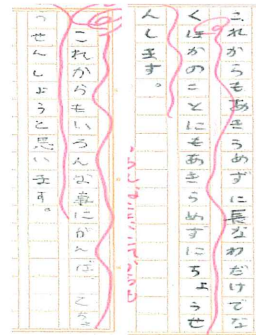 これからもあきらめずに長なわだけでな
くほかのことにもあきらめずにちょうせ
んします。
これからもいろんな事にがんばってちょ
うせんしようと思います。